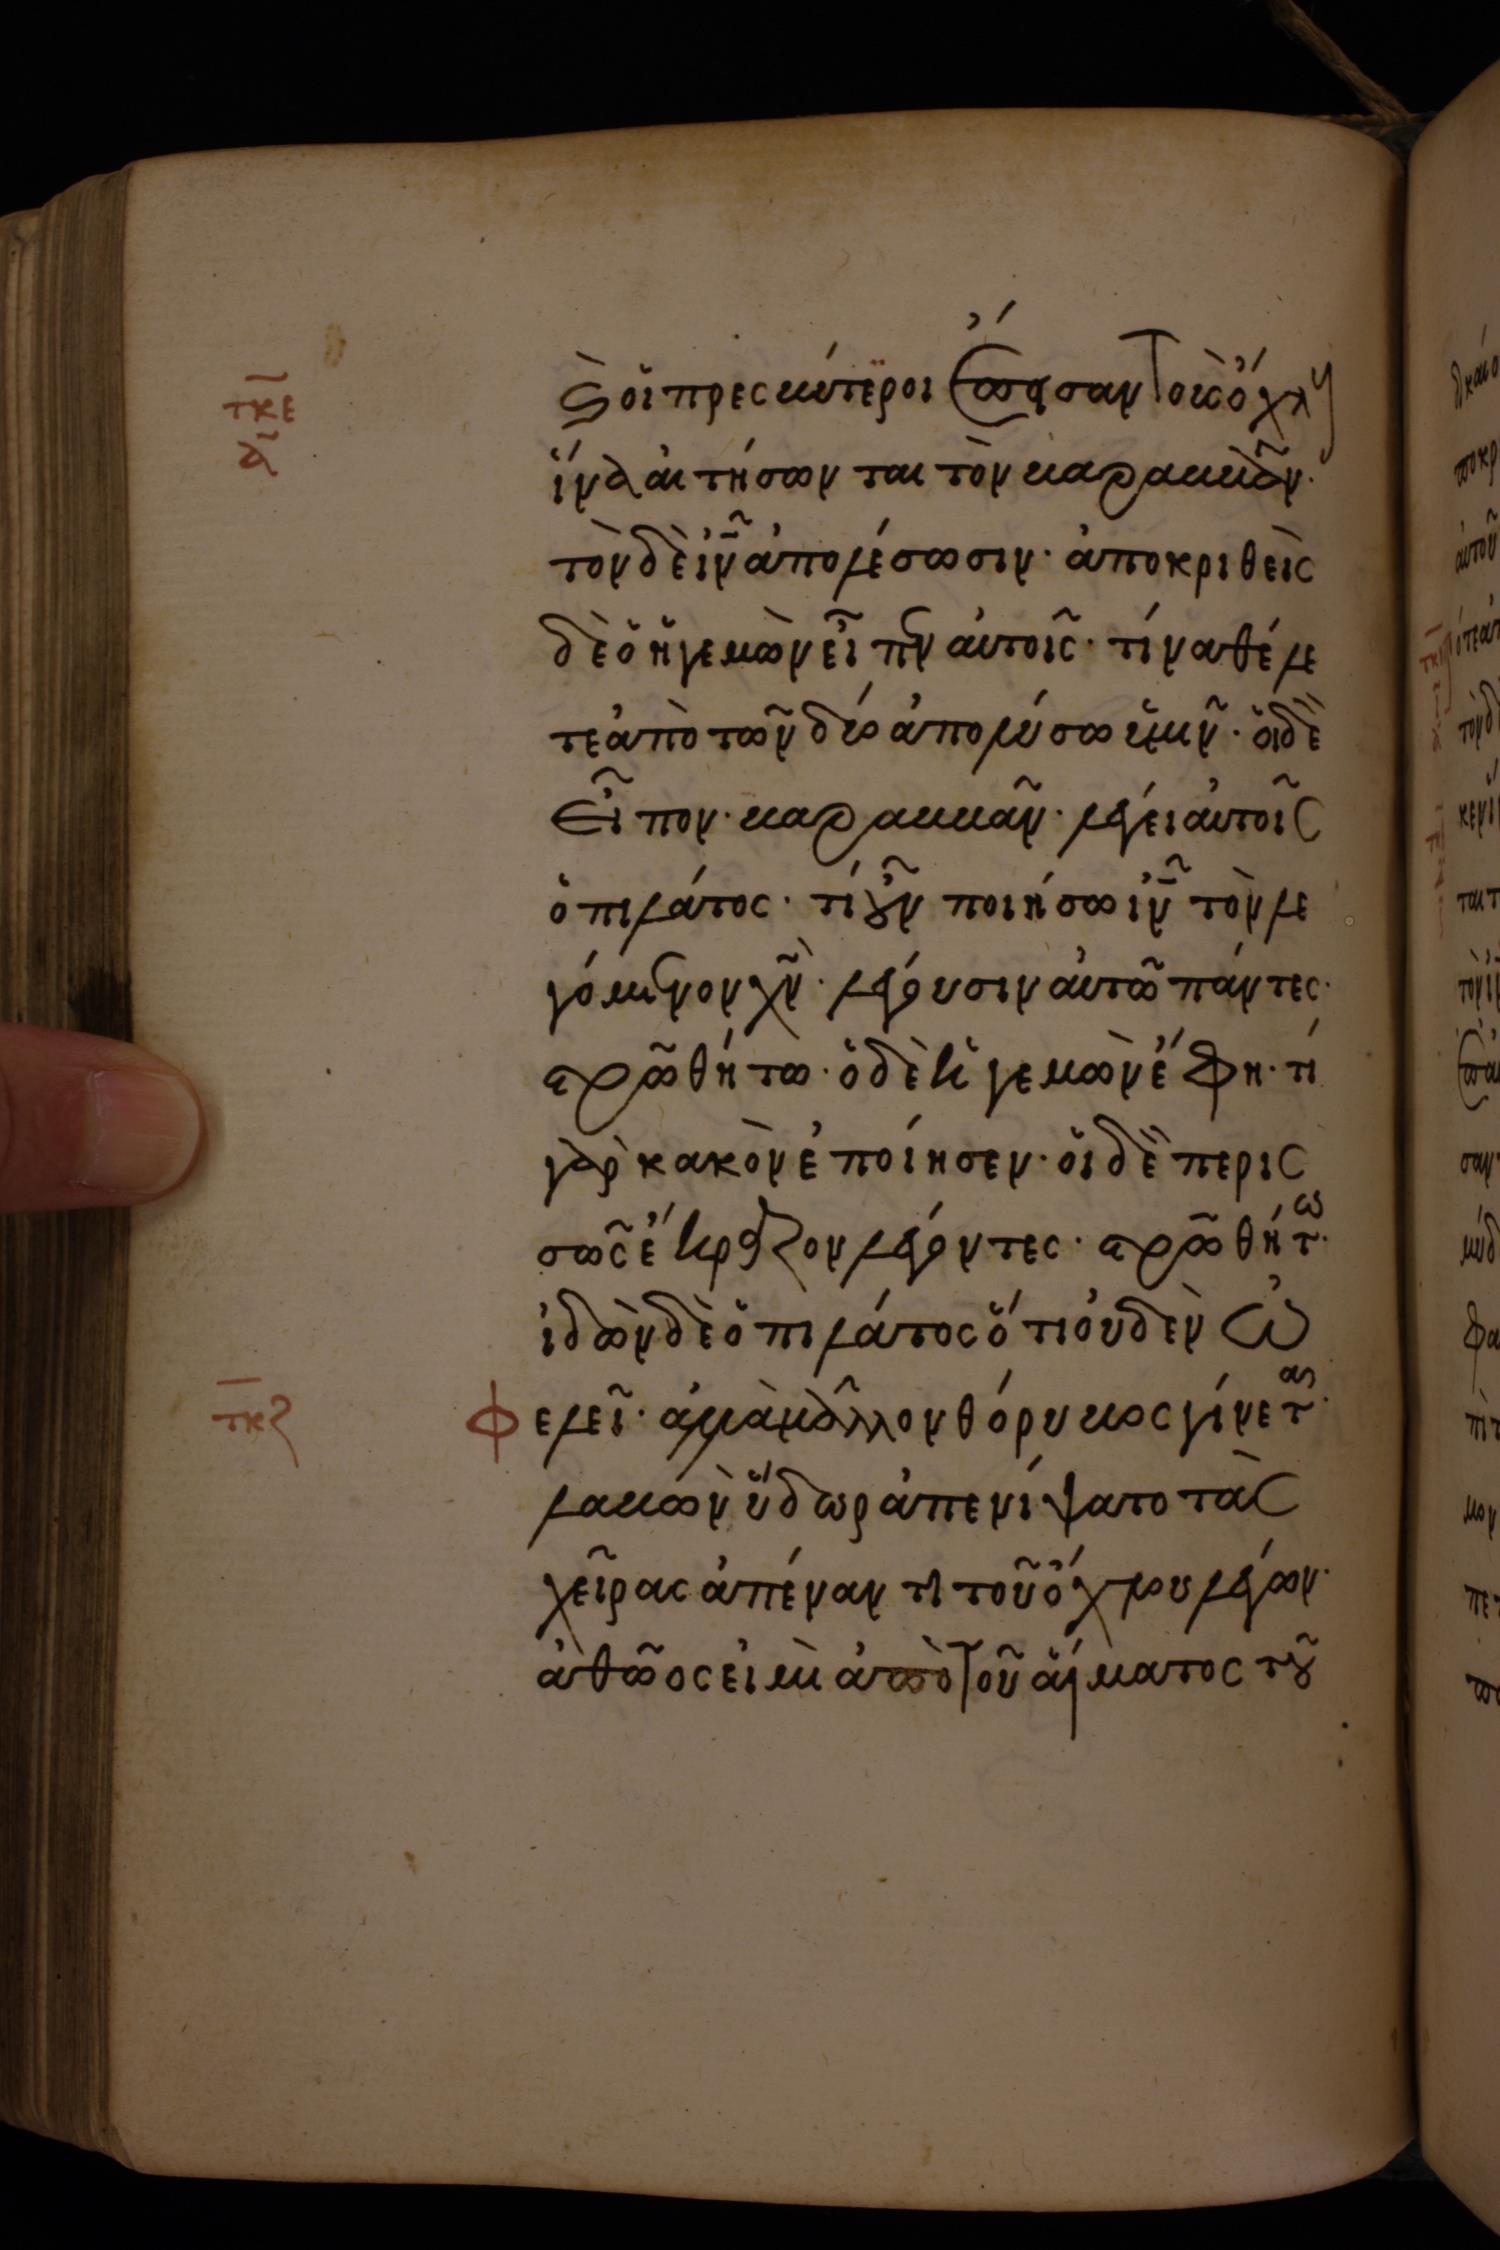 τκε
α
ϗ οἱ πρεσβύτεροι ἔπεισαν τοὺς ὄχλους
ἵνα αἰτήσωνται τὸν βαραββᾶν·
τὸν δὲ ιν̅ ἀπολέσωσιν· ἀποκριθεὶς
δὲ ὁ ἡγεμὼν εἶπεν αὐτοῖς· τίνα θέλε
τε ἀπὸ τῶν δύο ἀπολύσω ὑμῖν· οἱ δὲ
εἶπον· βαραββᾶν· λέγει αὐτοῖς
ὁ πιλάτος· τί οὖν ποιήσω ιν̅ τὸν λε
γόμενον χν̅· λέγουσιν αὐτῶ πάντες·
σταυρωθήτω· ὁ δὲ ἡγεμὼν ἔφη· τί
γὰρ κακὸν ἐποίησεν· οἱ δὲ περισ
σῶς ἔκραζον λέγοντες· σταυρωθήτω·
ἰδὼν δὲ ὁ πιλάτος ὅτι οὐδὲν ὠ
τκϛ
φελεῖ· ἀλλὰ μᾶλλον θόρυβος γίνεται·
λαβὼν ὕδωρ ἀπενίψατο τὰς
χεῖρας ἀπέναντι τοῦ ὄχλου λέγων·
ἀθῶος εἰμὶ ἀπὸ τοῦ αἵματος τοῦ